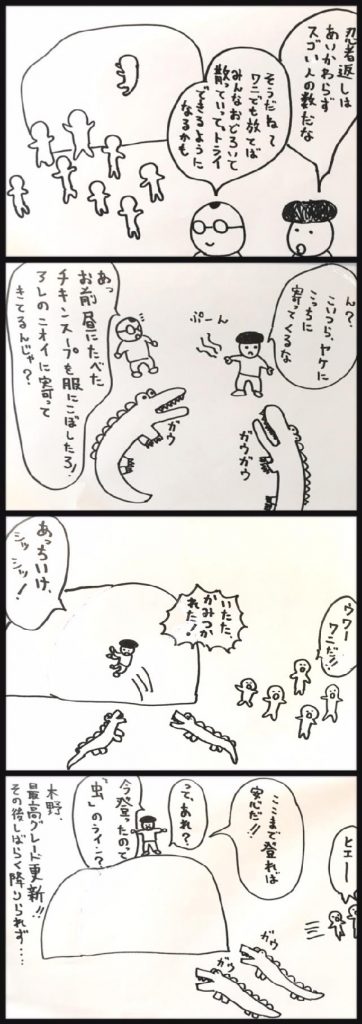 忍者返しは
あいかわらず
スゴい人の数だな
そうだね〜
ワニでも放てば
みんなおどろいて
散っていってトライ
できるように
なるかも
ん?
こいつら、ヤケに
こっちに
寄ってくるな
ぷーん
あっ
お前、昼にたべた
チキンスープを服にこぼしたろ!
そのニオイに寄って
きてるんじゃ?
ガウ
ガウガウ
ウワー
ワニだ!!
いたた、
かみつか
れた!
あっちいけ、
シッ
シッ!
ヒエー
ここまで登れば
安心だ!!
って、あれ?
今登ったのって
「虫」のライン?
ガウ
ガウ
木野、
最高グレード更新!!
その後しばらく降りられず……